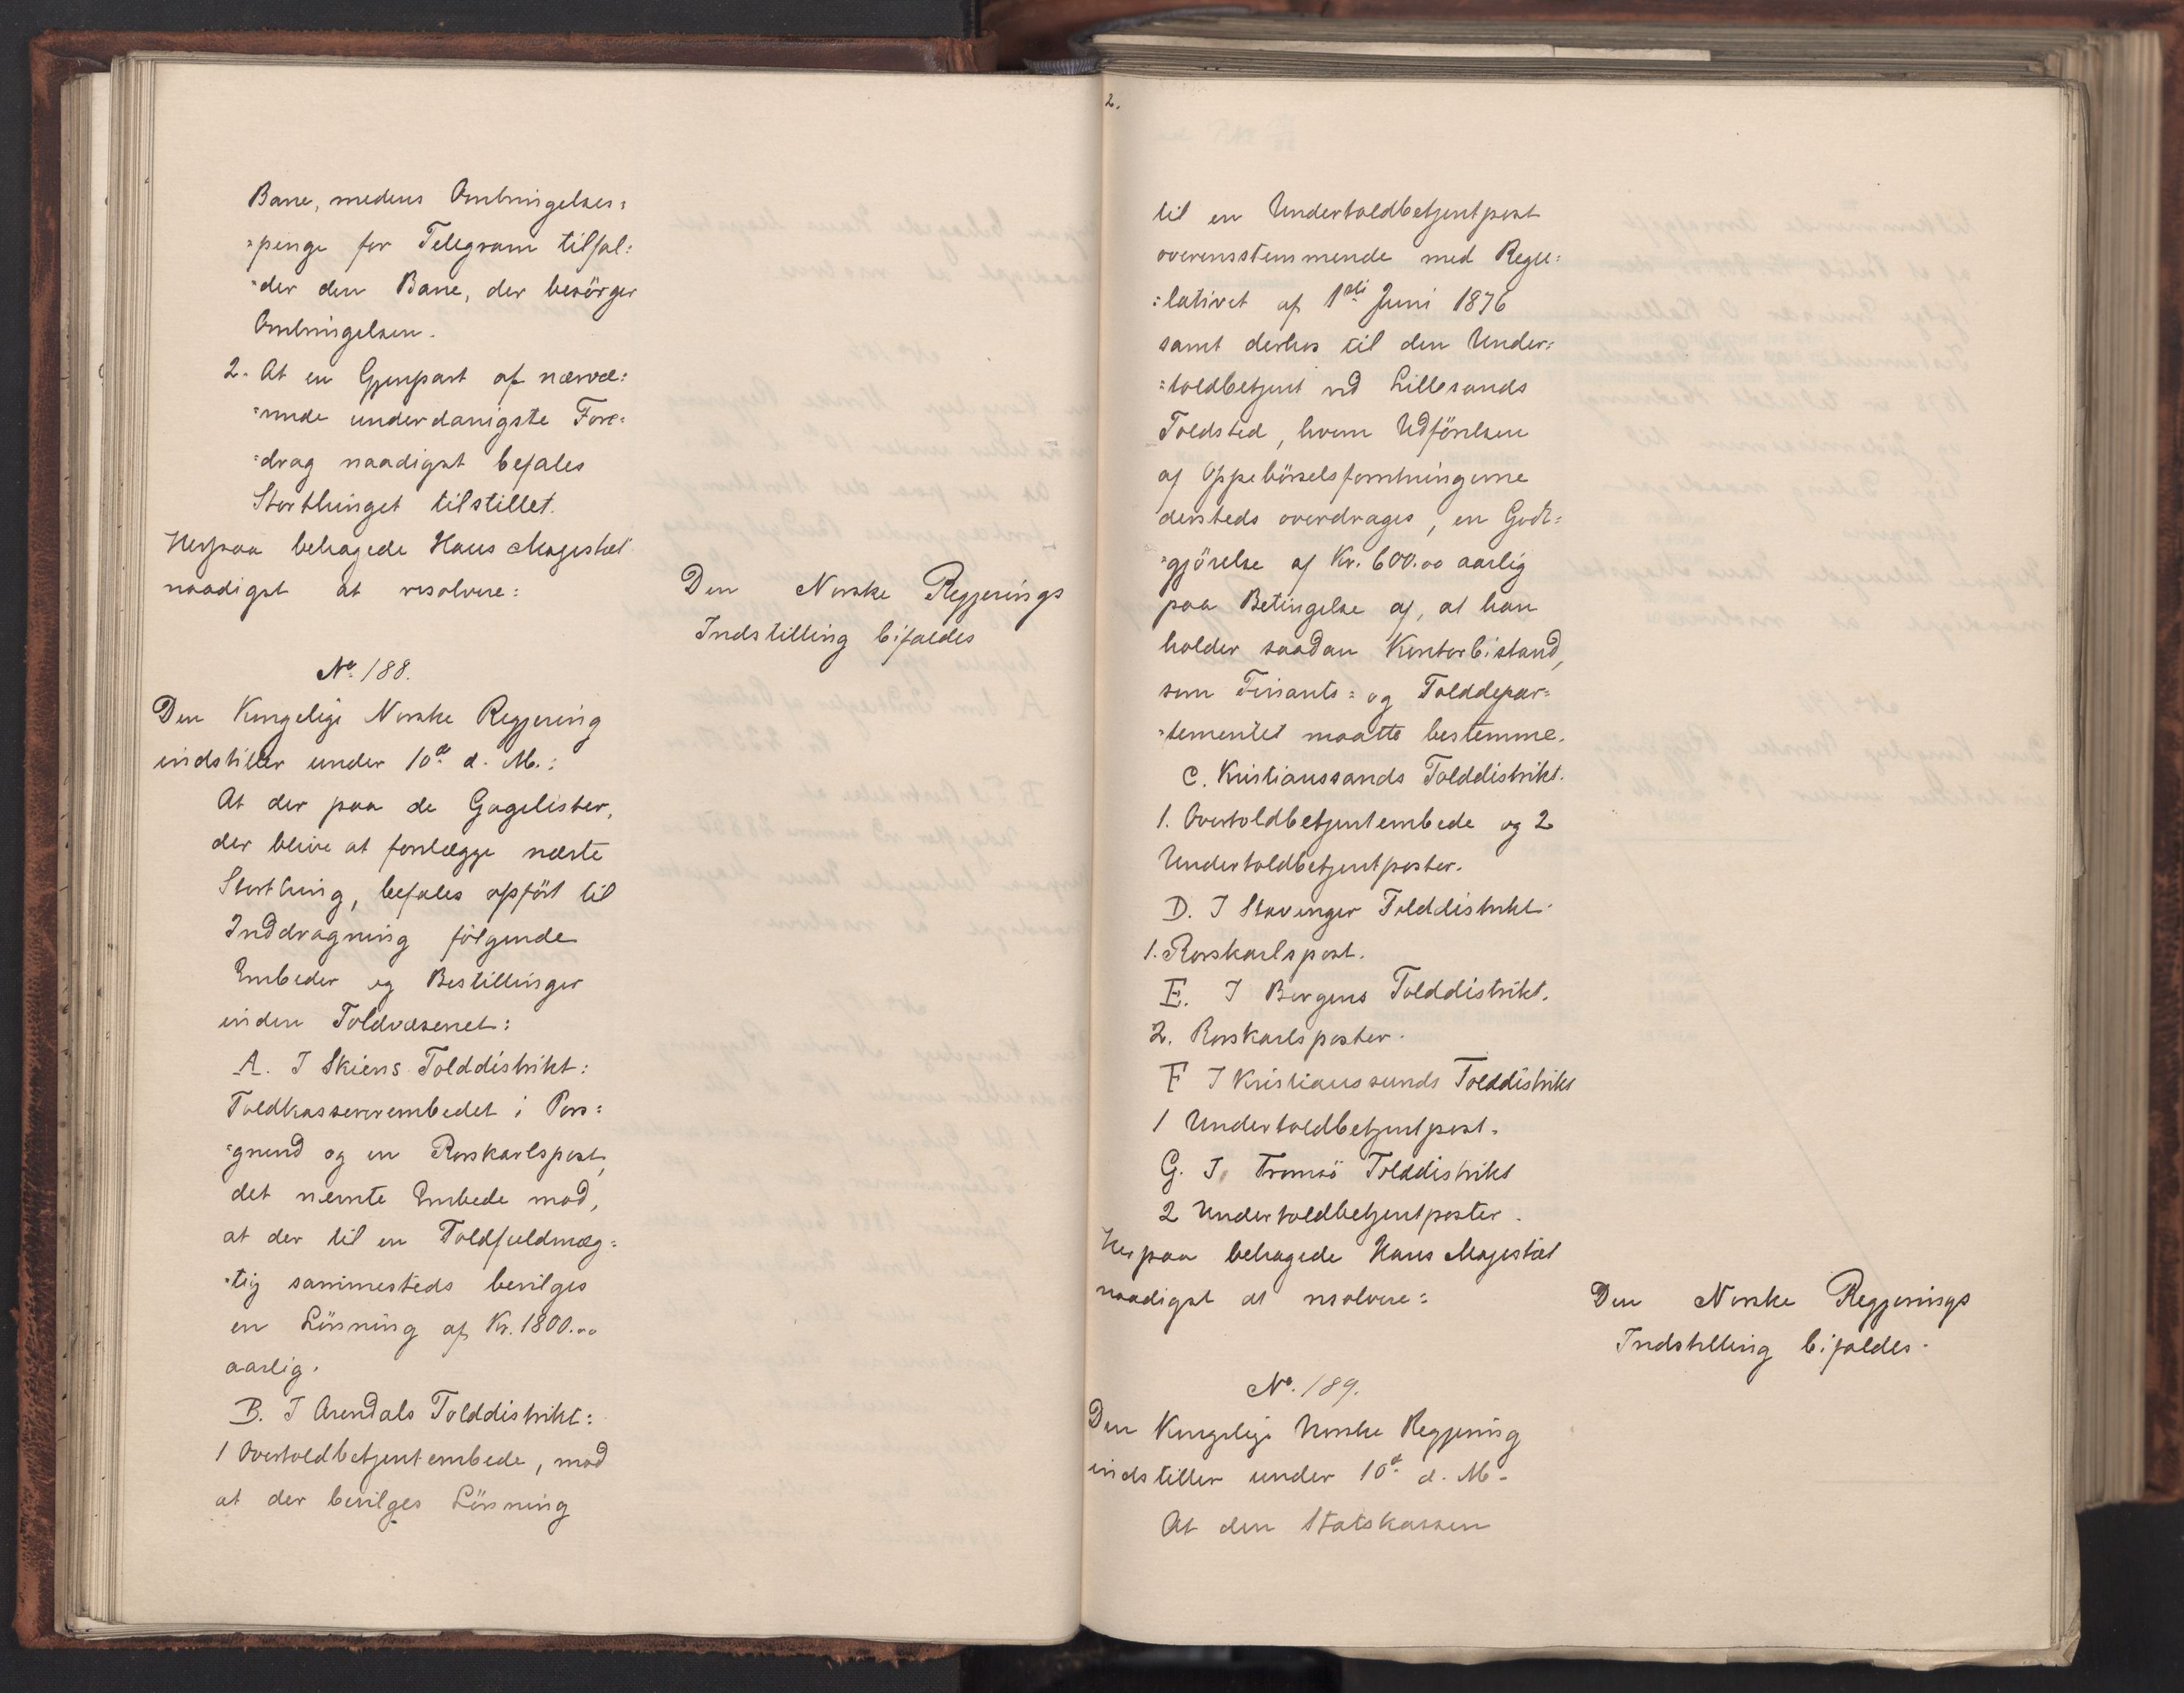 Bane, medens Ombringelses=
=penge for Telegram tilfal=
=der den Bane, der besörger
Ombringelsen.
2. At en Gjenpart af nærvæ=
=rende underdanigste Fore=
=drag naadigst befales
Storthinget tilstillet.
Herpaa behagede Hans Majestæt
naadigst at resolvere:
Den Norske Regjerings
Indstilling bifaldes
No. 188.
Den Kongelige Norske Regjering
indstiller under 10de d. M.:
At der paa de Gagelister,
der blive at forelægge næste
Storthing, befales opfört til
Inddragning fölgende
Embeder og Bestillinger
inden Toldvæsenet:
A. I Skiens Tolddistrikt:
Toldkassererembedet i Pors=
=grund og en Rorskarlspost,
det nævnte Embede mod,
at der til en Toldfuldmæg=
=tig sammesteds bevilges
en Lönning af Kr. 1800.00
aarlig.
B. I Arendals Tolddistrikt:
1 Overtoldbetjentembede, mod
at der bevilges Lönning
2.
til en Undertoldbetjentpost
overensstemmende med Regu=
=lativet af 1ste Juni 1876
samt derhos til den Under=
=toldbetjent ved Lillesands
Toldsted, hvem Udförelsen
af Oppebörselsforretningerne
dersteds overdrages, en Godt=
=gjörelse af Kr. 600.00 aarlig
paa Betingelse af, at han
holder saadan Kontorbistand,
som Finants= og Tolddepar=
=tementet maatte bestemme.
C. Kristianssands Tolddistrikt.
1. Overtoldbetjentembede og 2
Undertoldbetjentposter.
D. I Stavanger Tolddistrikt.
1. Rorskarlspost.
E. I Bergens Tolddistrikt.
2. Rorskarlsposter.
F I Kristianssunds Tolddistrikt
1 Undertoldbetjentpost.
G. I. Tromsö Tolddistrikt
2 Undertoldbetjentposter.
Herpaa behagede Hans Majestæt
naadigst at resolvere:
Den Norske Regjerings
Indstilling bifaldes.
No. 189.
Den Kongelige Norske Regjering
indstiller under 10de d. M.
At den Statskassen